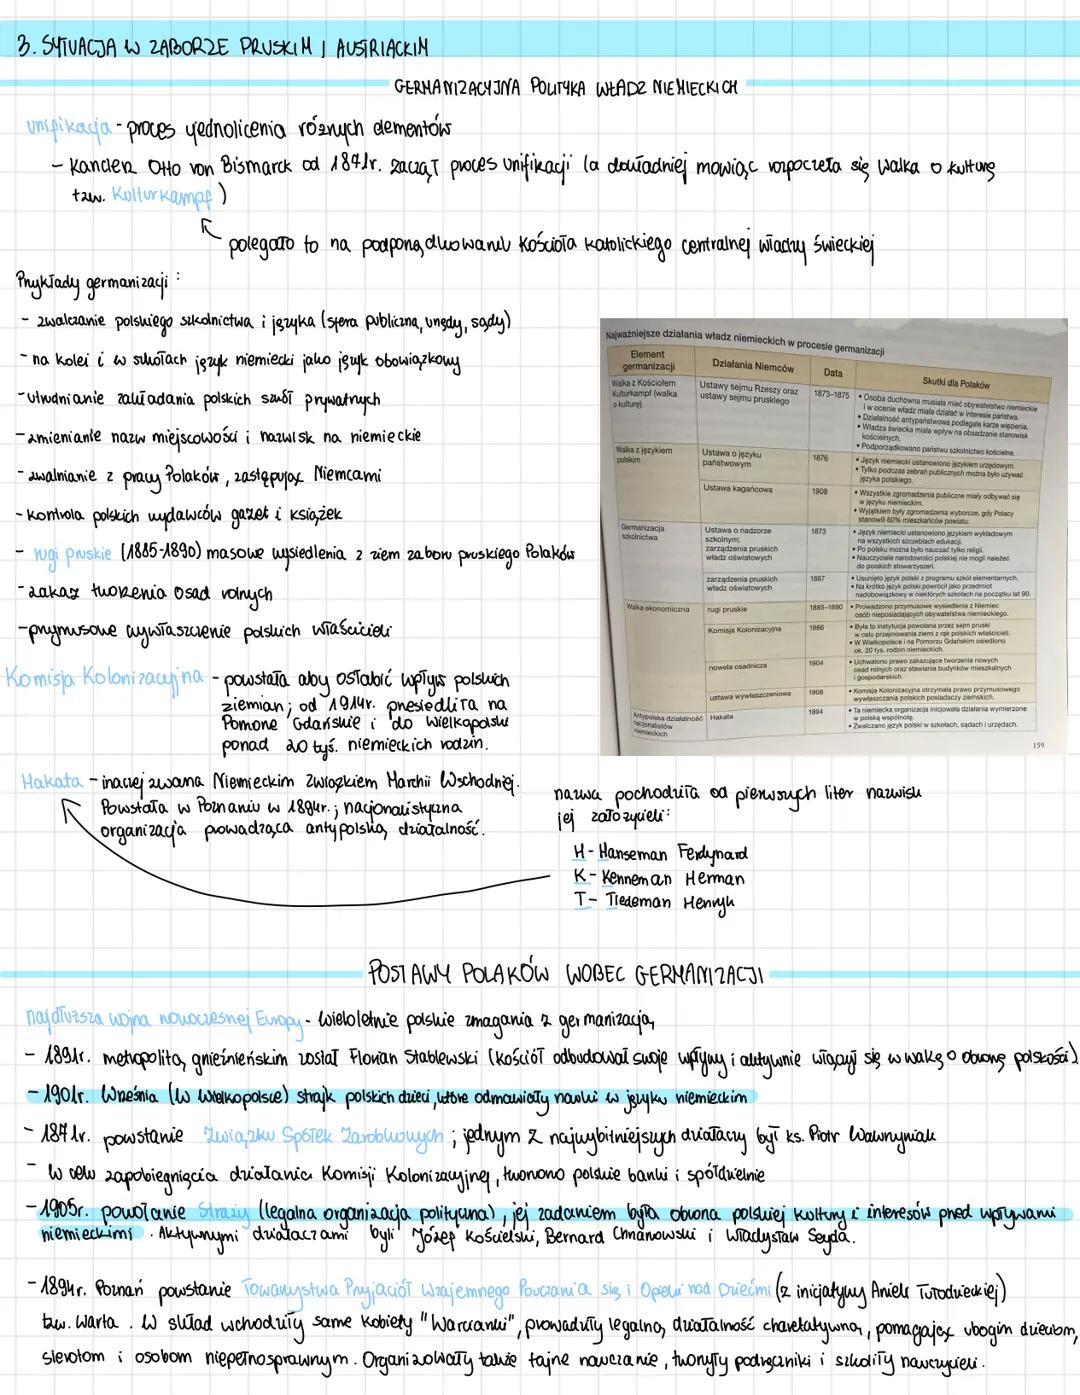 3. SYTUACJA W ZABORZE PRUSKIM I AUSTRIACKIM
GERMANIZACYJNA POLITYKA WŁADZ NIEMIECKICH
unifikacja - proces ujednolicenia różnych elementów
- Kanclerz Otto von Bismarck od 1871r. zaczął proces unifikacji (a dokładniej mówiąc rozpoczęła się walka o kulturę
tzw. Kulturkampf)
polegało to na podporządkowaniu Kościoła katolickiego centralnej władzy świeckiej
Przykłady germanizacji:
- zwalczanie polskiego szkolnictwa i języka (sfera publiczna, urzędy, sądy)
- na kolei i w szkołach język niemiecki jako język obowiązkowy
- utrudnianie zakładania polskich szkół prywatnych
- zmienianie nazw miejscowości i nazwisk na niemieckie
- zwalnianie z pracy Polaków, zastępując Niemcami
- kontrola polskich wydawców gazet i książek
- rugi pruskie (1885-1890) masowe wysiedlenia z ziem zaboru pruskiego Polaków
- zakaz tworzenia osad rolnych
- przymusowe wywłaszczenie polskich właścicieli
Najważniejsze działania władz niemieckich w procesie germanizacji
Element germanizacji Działania Niemców Data Skutki dla Polaków
Walka z Kościołem Kulturkampf (walka o kulturę)
Ustawy sejmu Rzeszy oraz ustawy sejmu pruskiego
1873–1875
• Osoba duchowna musiała mieć obywatelstwo niemieckie
i w ocenie władz miała działać w interesie państwa.
• Działalność antypaństwowa podlegała karze więzienia.
• Władza świecka miała wpływ na obsadzanie stanowisk
kościelnych.
• Podporządkowano państwu szkolnictwo kościelne.
Walka z językiem polskim
Ustawa o języku państwowym
1876
• Język niemiecki ustanowiono językiem urzędowym.
• Tylko podczas zebrań publicznych można było używać
języka polskiego.
Ustawa kagańcowa
1908
• Wszystkie zgromadzenia publiczne miały odbywać się
w języku niemieckim.
• Wyjątkiem były zgromadzenia wyborcze, gdy Polacy
stanowili 60% mieszkańców powiatu.
Germanizacja szkolnictwa
Ustawa o nadzorze szkolnym; zarządzenia pruskich władz oświatowych
1873
• Język niemiecki ustanowiono językiem wykładowym
na wszystkich szczeblach edukacji.
• Po polsku można było nauczać tylko religii.
• Nauczyciele narodowości polskiej nie mogli należeć
do polskich stowarzyszeń.
zarządzenia pruskich władz oświatowych
1887
• Usunięto język polski z programu szkół elementarnych.
• Na krótko język polski powrócił jako przedmiot
nadobowiązkowy w niektórych szkołach na początku lat 90.
Walka ekonomiczna
rugi pruskie
1885–1890
• Prowadzono przymusowe wysiedlenia z Niemiec
osób nieposiadających obywatelstwa niemieckiego.
Komisja Kolonizacyjna
1886
• Była to instytucja powołana przez sejm pruski
w celu przejmowania ziemi z rąk polskich właścicieli.
• W Wielkopolsce i na Pomorzu Gdańskim osiedlono
ok. 20 tys. rodzin niemieckich.
nowela osadnicza
1904
• Uchwalono prawo zakazujące tworzenia nowych
osad rolnych oraz stawiania budynków mieszkalnych
i gospodarskich.
ustawa wywłaszczeniowa
1908
• Komisja Kolonizacyjna otrzymała prawo przymusowego
wywłaszczania polskich posiadaczy ziemskich.
Antypolska działalność nacjonalistów niemieckich
Hakata
1894
• Ta niemiecka organizacja inicjowała działania wymierzone
w polską wspólnotę.
• Zwalczano język polski w szkołach, sądach i urzędach.
159
Komisja Kolonizacyjna - powstała aby osłabić wpływ polskich
ziemian; od 1914r. przesiedliła na
Pomorze Gdańskie i do Wielkopolski
ponad 20 tyś. niemieckich rodzin.
Hakata - inaczej zwana Niemieckim Związkiem Marchii Wschodniej.
Powstała w Poznaniu w 1894r.; nacjonalistyczna
organizacja prowadząca antypolską działalność.
nazwa pochodziła od pierwszych liter nazwisk
jej założycieli:
H - Hanseman Ferdynard
K - Kenneman Herman
T - Tiedeman Henryk
POSTAWY POLAKÓW WOBEC GERMANIZACJI
najdłuższa wojna nowoczesnej Europy - wieloletnie polskie zmagania z germanizacją
- 1891r. metropolitą gnieźnieńskim został Florian Stablewski (kościół odbudował swoje wpływy i aktywnie włączył się w walkę o obronę polskości)
- 1901r. Września (w Wielkopolsce) strajk polskich dzieci, które odmawiały nauki w języku niemieckim
- 1871r. powstanie Związku Spółek Zarobkowych; jednym z najwybitniejszych działaczy był ks. Piotr Wawrzyniak
- W celu zapobiegnięcia działania Komisji Kolonizacyjnej, tworzono polskie banki i spółdzielnie
- 1905r. powołanie Straży (legalna organizacja polityczna), jej zadaniem była obrona polskiej kultury i interesów przed wpływami
niemieckimi. Aktywnymi działaczami byli Józef Kościelski, Bernard Chrzanowski i Władysław Seyda.
- 1894r. Poznań powstanie Towarzystwa Przyjaciół Wzajemnego Pouczania się i Opieki nad Dziećmi (z inicjatywy Anieli Tułodzieckiej)
tzw. Warta. W skład wchodziły same kobiety "Warcianki", prowadziły legalną działalność charetatywną, pomagając ubogim dzieciom,
sierotom i osobom niepełnosprawnym. Organizowały także tajne nauczanie, tworzyły podręczniki i szkoliły nauczycieli.